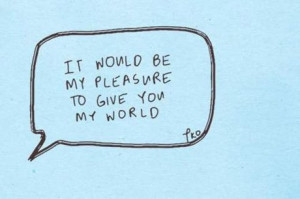 IT WOULD BE
MY PLEASURE
TO GIVE YOU
MY WORLD